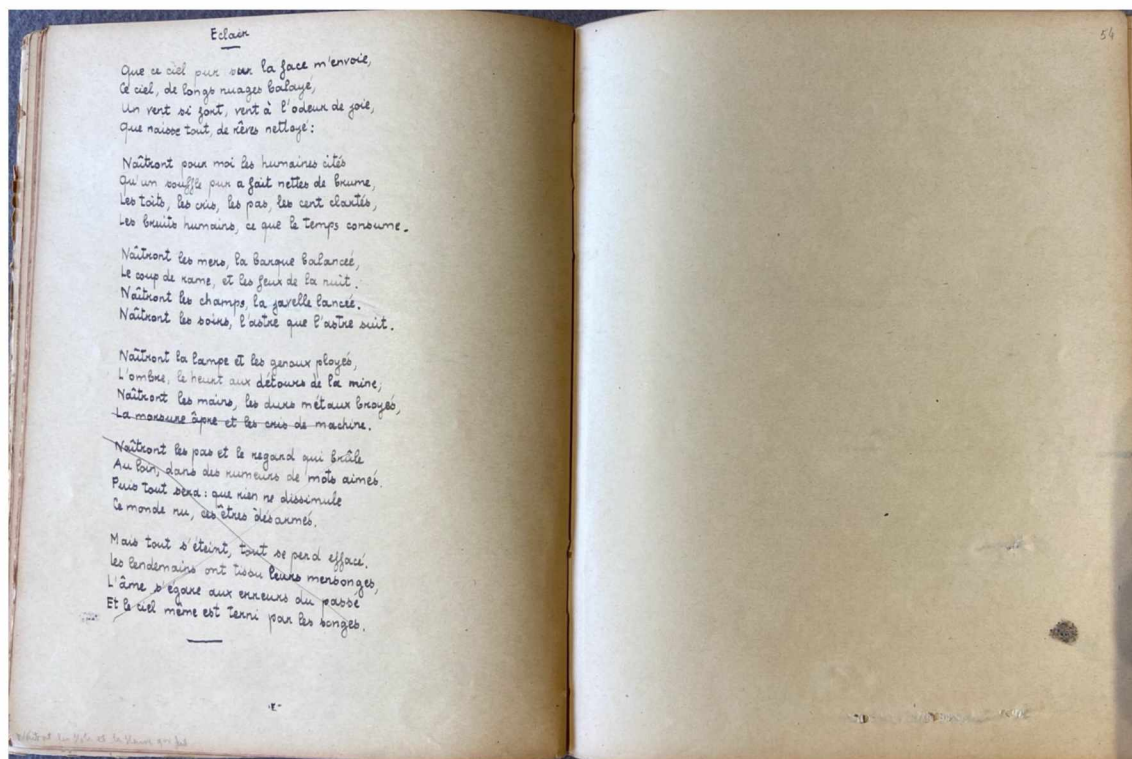 Eclair
Que ce ciel pur sur la face m'envoie,
Ce ciel, de longs nuages balayé,
Un vent si fort, vent à l'odeur de joie,
Que naisse tout, de rêves nettoyé :
Naîtront pour moi les humaines cités
Qu'un souffle pur a fait nettes de brume,
Les toits, les cris, les pas, les cent clartés,
Les bruits humains, ce que le temps consume.
Naîtront les mers, la barque balancée,
Le coup de rame, et les feux de la nuit.
Naîtront les champs, la javelle lancée.
Naîtront les soirs, l'astre que l'astre suit.
Naîtront la lampe et les genoux ployés,
L'ombre, le heurt aux détours de la mine;
Naîtront les mains, les durs métaux broyés,
La morsure âpre et les cris de machine.
Naîtront les pas et le regard qui brûle
Au loin, dans des rumeurs de mots aimés.
Puis tout sera : que rien ne dissimule
Ce monde nu, ces êtres désarmés.
Mais tout s'éteint, tout se perd effacé.
Les lendemains ont tissu leurs mensonges,
L'âme s'égare aux erreurs du passé
Et le ciel même est terni par les songes.
54